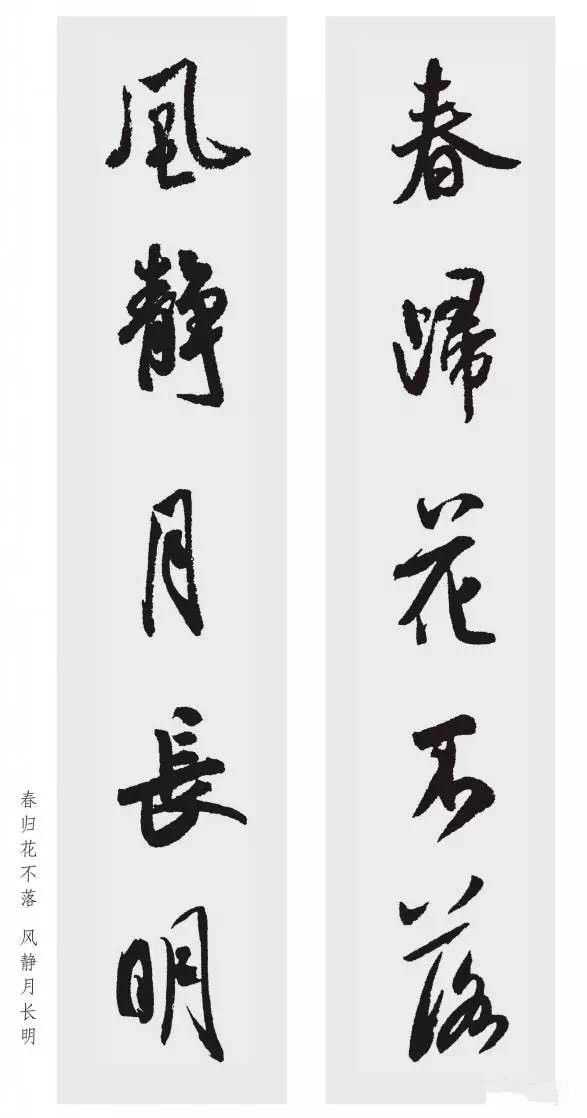 春歸花不落
風靜月長明
春归花不落 风静月长明